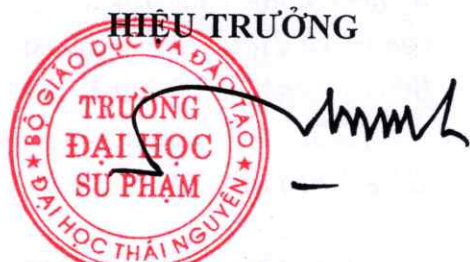 HIỆU TRƯỞNG
BỘ GIÁO DỤC VÀ ĐÀO TẠO
TRƯỜNG
ĐẠI HỌC
SƯ PHẠM
★ ĐẠI HỌC THÁI NGUYÊN ★